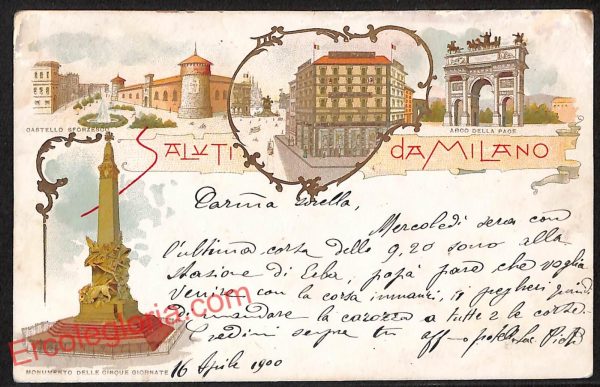 CASTELLO SFORZESCO
ARCO DELLA PACE
SALUTI DA MILANO
Carma sorella,
Mercoledì sera con
l'ultima corsa delle 9,20 sono alla
stazione di Erba, papà pare che voglia
venire con la corsa innanzi, ti pregherei quindi
di mandare la carozza a tutte 2 le corse.
Credimi sempre tu aff-mo
16 Aprile 1900
MONUMENTO DELLE CINQUE GIORNATE
Ercolegloria.com